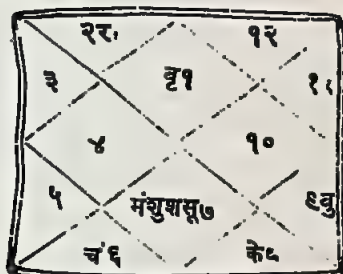 २रा. १२
३ वृ१ ११
४ १०
५ मंशुशसू७ ९वु
चं६ के८